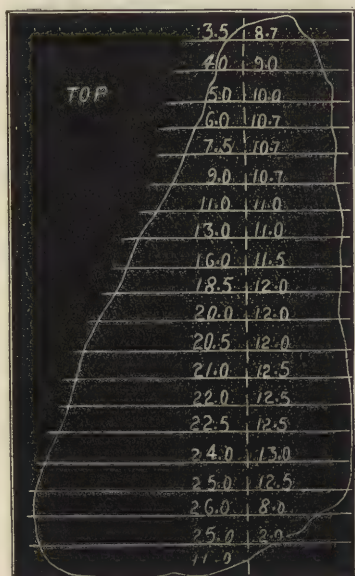 3.5 8.7
4.0 9.0
TOP 5.0 10.0
6.0 10.7
7.5 10.7
9.0 10.7
11.0 11.0
13.0 11.0
16.0 11.5
18.5 12.0
20.0 12.0
20.5 12.0
21.0 12.5
22.0 12.5
22.5 12.5
24.0 13.0
25.0 12.5
26.0 8.0
25.0 2.0
11.0